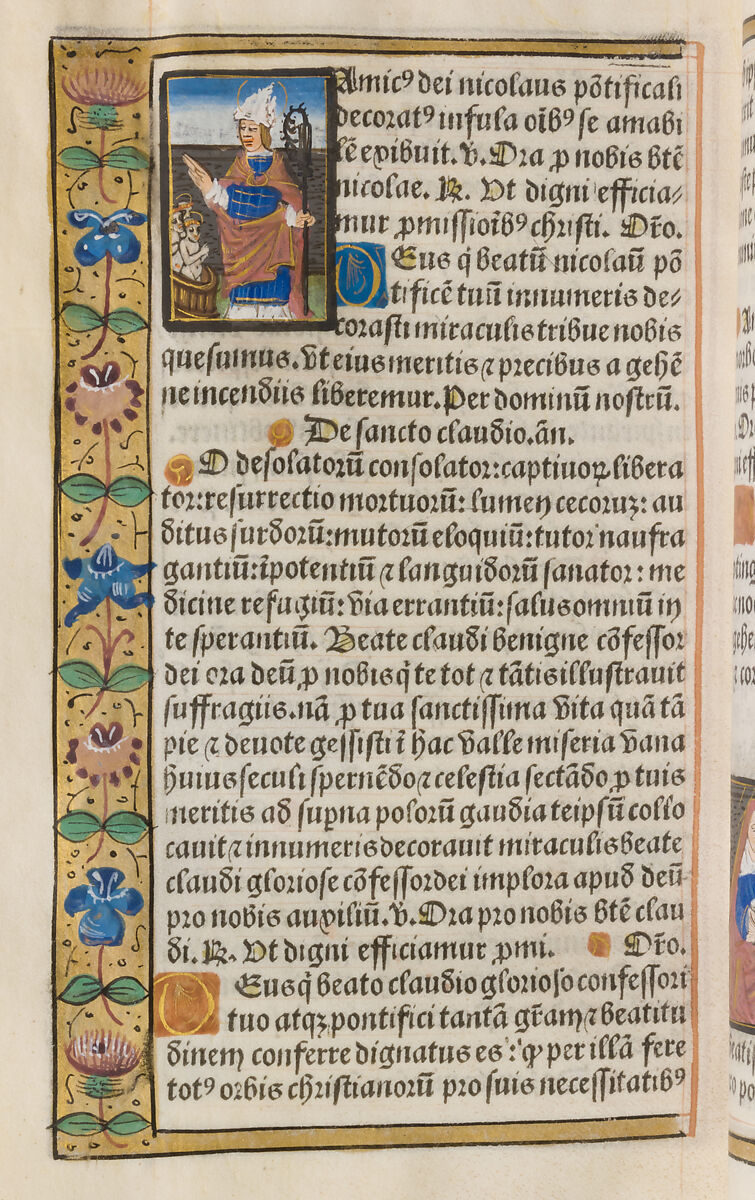 Amicꝰ dei nicolaus põtificali
decoratꝰ infula oĩbꝰ se amabi
lẽ exibuit. v̄. Ora ꝓ nobis btẽ
nicolae. ꝶ. Vt digni efficia⸗
mur ꝓmissioĩbꝰ christi. Or̃o.
DEus q̇ beatũ nicolaũ põ
tificẽ tuũ innumeris de⸗
corasti miraculis tribue nobis
quesumus. vt eius meritis ⁊ precibus a gehẽ
ne incendiis liberemur. Per dominũ nostrũ.
De sancto claudio. añ.
O desolatorũ consolator: captiuoꝝ libera
tor: resurrectio mortuorũ: lumen cecoruꝫ: au
ditus surdorũ: mutorũ eloquiũ: tutor naufra
gantiũ: ĩpotentiũ ⁊ languidorũ sanator: me
dicine refugiũ: via errantiũ: salus omniũ in
te sperantiũ. Beate claudi benigne cõfessor
dei ora deũ ꝓ nobis q̇ te tot ⁊ tãtis illustrauit
suffragiis. nã ꝓ tua sanctissima vita quã tã
pie ⁊ deuote gessisti ĩ hac valle miseria vana
huius seculi spernẽdo ⁊ celestia sectãdo ꝓ tuis
meritis ad suꝑna polorũ gaudia teipsũ collo
cauit ⁊ innumeris decorauit miraculis beate
claudi gloriose cõfessor dei implora apud deũ
pro nobis auxiliũ. v̄. Ora pro nobis btẽ clau
di. ꝶ. Vt digni efficiamur ꝓmi. Or̃o.
DEus q̇ beato claudio glorioso confessori
tuo atqꝫ pontifici tantã gr̃am ⁊ beatitu
dinem conferre dignatus es: ꝙ per illã fere
totꝰ orbis christianorũ pro suis necessitatibꝰ